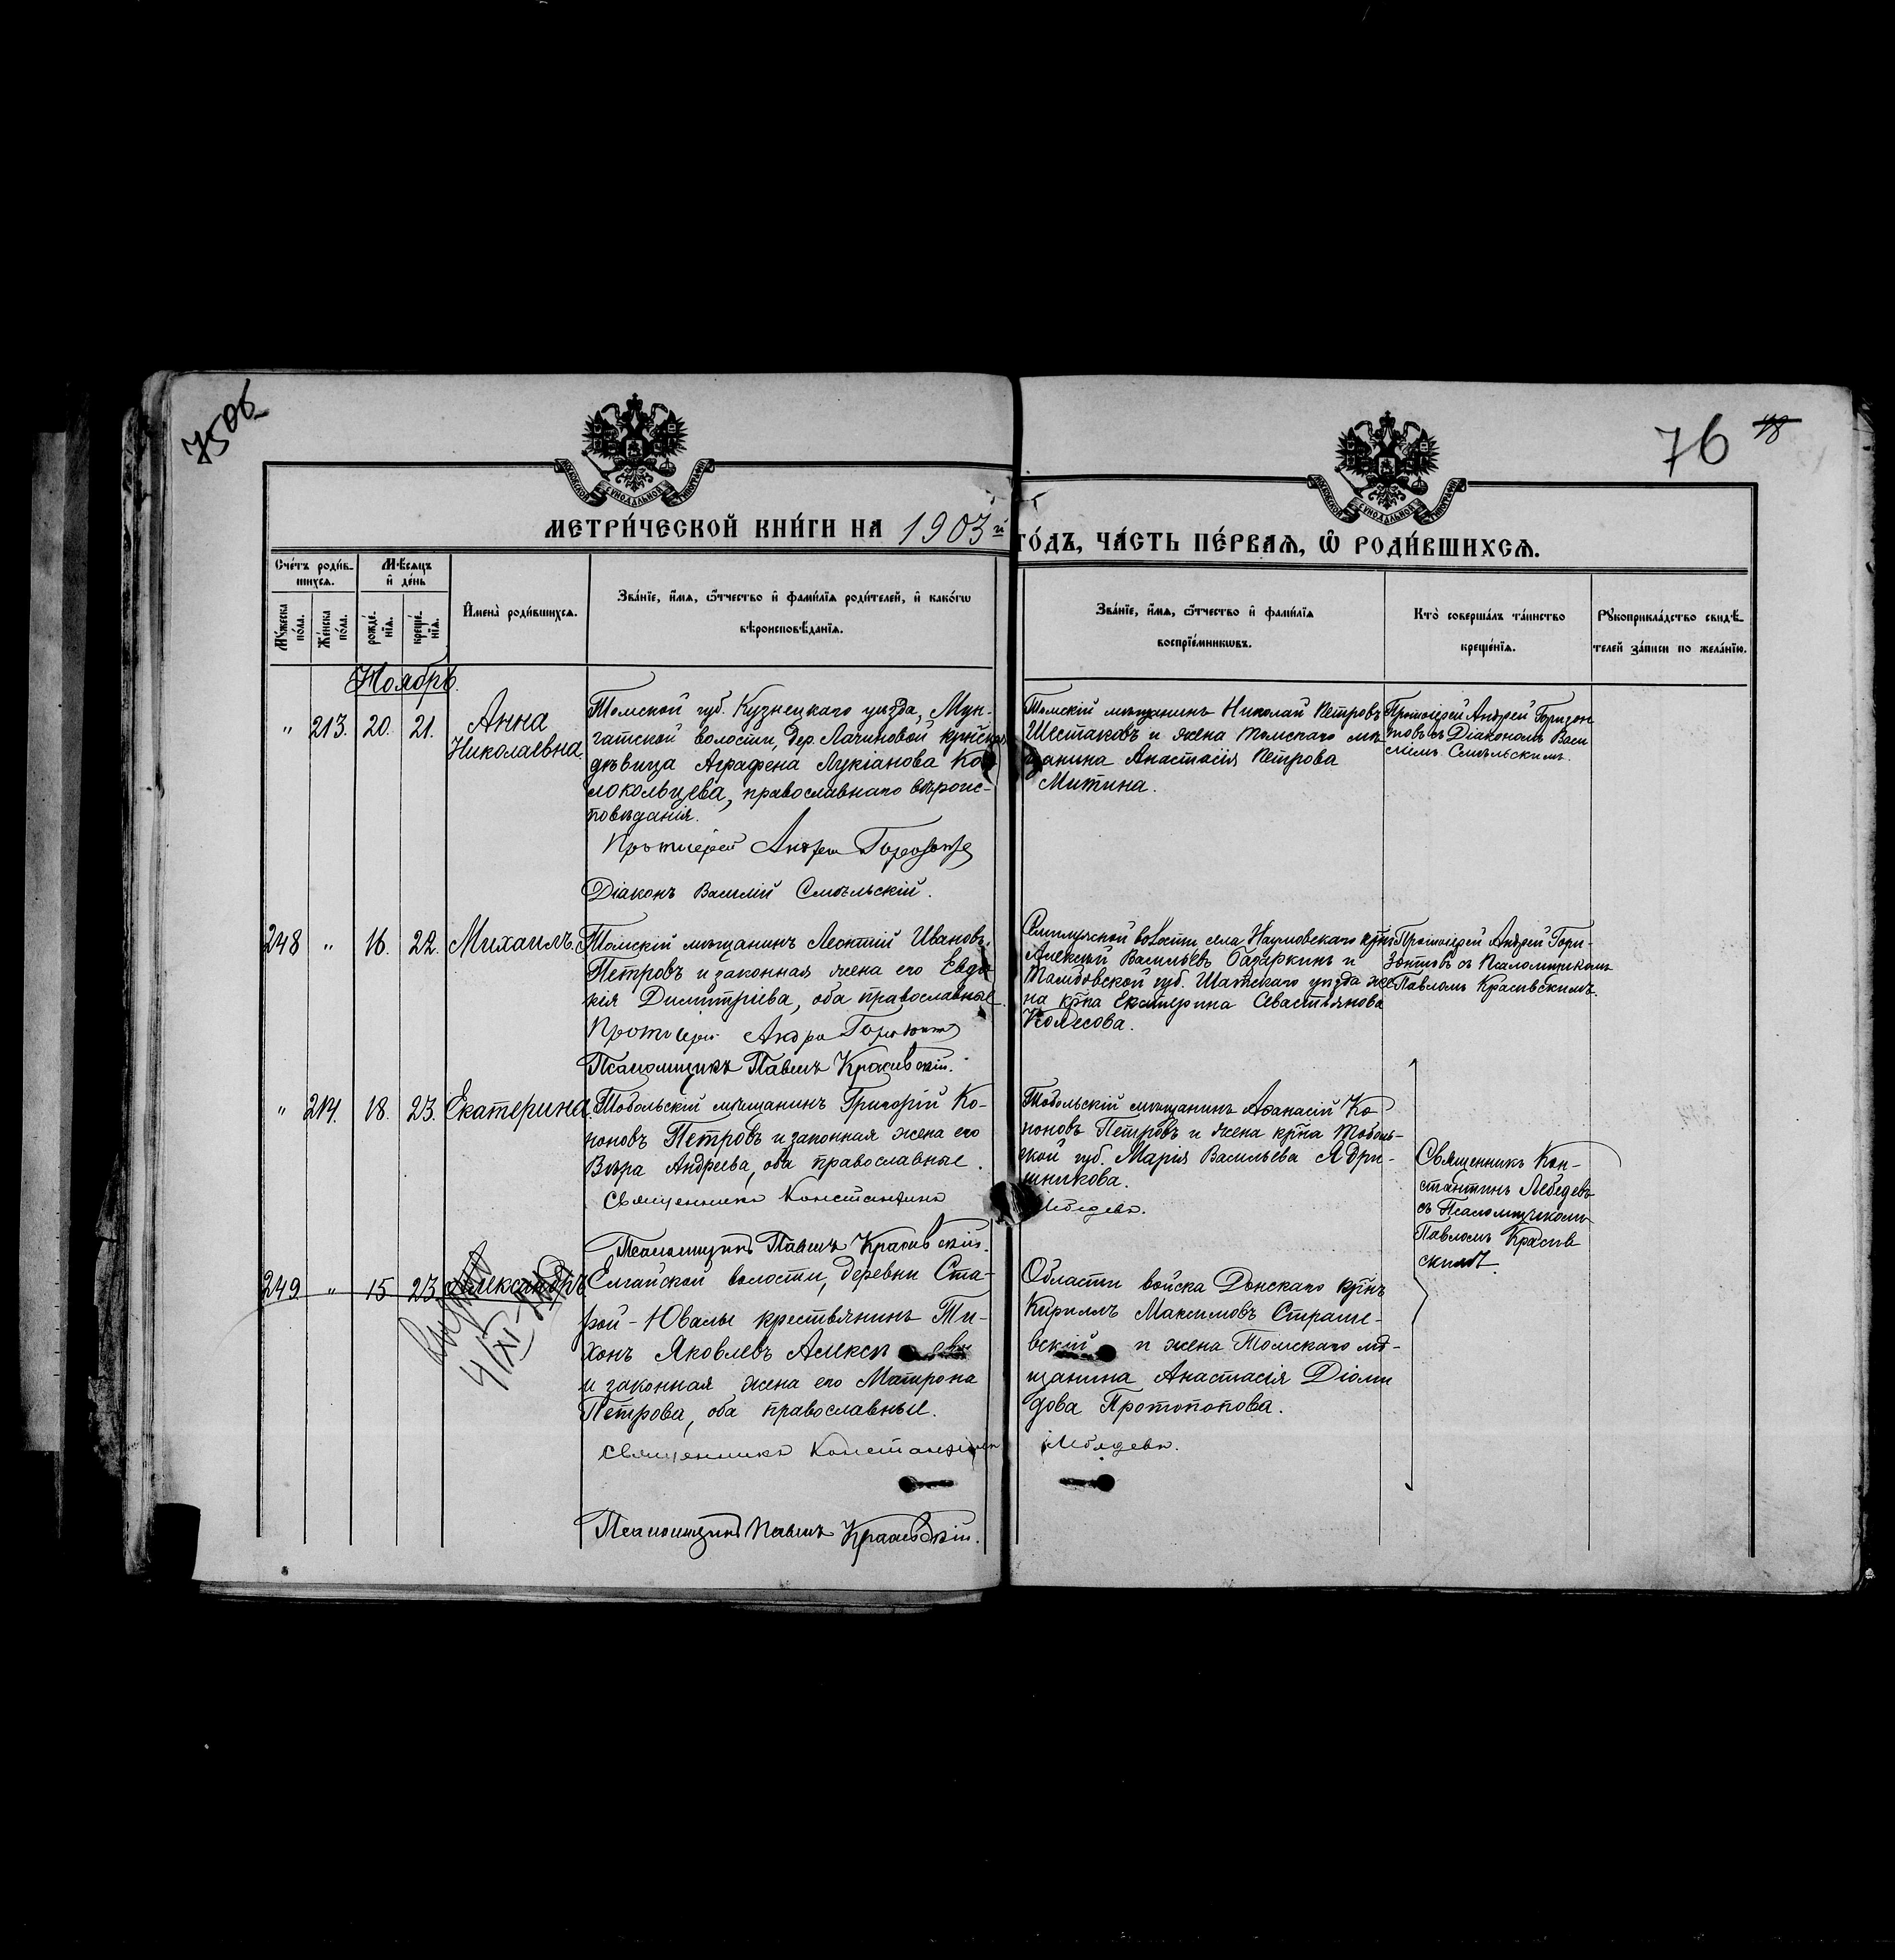 75 об
76
18
МОСКОВСКОЙ СѴНОДАЛЬНОЙ ТИПОГРАФІИ
МОСКОВСКОЙ СѴНОДАЛЬНОЙ ТИПОГРАФІИ
МЕТРИ́ЧЕСКОЙ КНИ́ГИ НА 1903 й
ГО́ДЪ, ЧА́СТЬ ПЕ́РВАѦ, Ѿ РОДИ́ВШИХСѦ.
Сче́тъ роди́в-
шихсѧ.
Мѣ́сѧцъ
и҆ де́нь
Мꙋ́жеска по́ла.
Же́нска по́ла.
рожде́-
нїѧ.
креще́-
нїѧ.
И҆мена̀ роди́вшихсѧ.
Зва́нїе, и҆́мѧ, ѻ҆́тчество и҆ фами́лїѧ роди́телей, и҆ како́гѡ
вѣроисповѣ́данїѧ.
Зва́нїе, и҆́мѧ, ѻ҆́тчество и҆ фами́лїѧ
воспрїе́мникѡвъ.
Кто̀ соверша́лъ та́инство
креще́нїѧ.
Рꙋкоприкла́дство свидѣ́-
телей за́писи по жела́нїю.
Ноябрь.
" 213. 20. 21. Анна
Николаевна.
Томской губ. Кузнецкаго уѣзда, Мун-
гатской волости, дер. Лачиновой крест.
дѣвица Аграфена Лукіанова Ко-
локольцева, православнаго вѣроис-
повѣданія.
Протоіерей Андрей
Діаконъ Василій Смѣльскій.
Томскій мѣщанинъ Николай Петровъ
Шестаковъ и жена томскаго мѣ-
щанина Анастасія Петрова
Митина.
Протоіерей Андрей Горизон-
товъ съ Діакономъ Васи-
ліемъ Смѣльскимъ.
248 " 16. 22. Михаилъ.
Томскій мѣщанинъ Леонтій Ивановъ
Петровъ и законная жена его Евдо-
кія Димитріева, оба православные.
Протоіерей Андрей
Псаломщикъ Павелъ Красивскій.
волости, села Наумовскаго
Алексѣй Васильевъ Базаркинъ и
Тамбовской губ. Шатскаго уѣзда же-
на кр-на Екатерина Севастьянова
Колесова.
Протоіерей Андрей Гори-
зонтовъ съ Псаломщикомъ
Павломъ Красивскимъ.
" 214. 18. 23. Екатерина.
Тобольскій мѣщанинъ Григорій Ко-
ноновъ Петровъ и законная жена его
Вѣра Андреева, оба православные.
Священникъ Константинъ
Псаломщикъ Павелъ Красивскій.
Тобольскій мѣщанинъ Аѳанасій Ко-
ноновъ Петровъ и жена кр-на Тоболь-
ской губ. Марія Васильева Ядри-
шникова.
Лебедевъ.
Священникъ Кон-
стантинъ Лебедевъ
съ Псаломщикомъ
Павломъ Красив
скимъ.
249 " 15 23. Александръ
4/XI
Елгайской волости, деревни Ста-
рой-Ювалы крестьянинъ Ти-
хонъ Яковлевъ
и законная жена его Матрона
Петрова, оба православные.
Священникъ Константинъ
Псаломщикъ Павелъ Красивскій.
Области войска Донскаго кр-нъ
Кириллъ Максимовъ Страше-
вскій и жена Томскаго мѣ-
щанина Анастасія Діоми
дова Протопопова.
Лебедевъ.